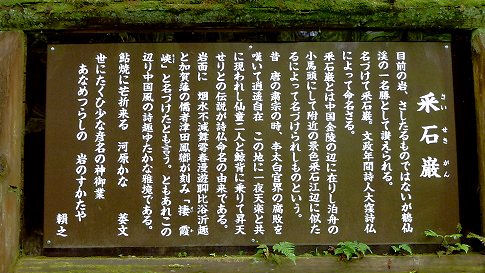 采石巌
さい せき がん
目前の岩、さしたるものではないが鶴仙
渓の一名勝として讃えられる。
名づけて采石巌、文政年間詩人大窪詩仏
によって命名さる。
采石巌とは中国金陵の辺に在りし泊舟の
小馬頭にして附近の景色采石江辺に似た
るによって名づけられしものという。
昔 唐の粛宗の時、李太白官界の腐敗を
嘆いて逍遥自在 この地に一夜天楽と共
に現われし仙童二人と鯨背に乗りて昇天
せりとの伝説が詩仏命名の由来である。
岩面に 烟水不減舞雩春漫遊聊比浴沂趣
と加賀藩の儒者津田鳳卿が刻み「棲霞
峡」とも名づけたともも言う。ともあれ、この
辺り中国風の詩趣ゆたかな雅境である。
鮎焼に芒折来る 河原かな 英文
世にたくひ少なき唐名の神御業
あなめつらしの 岩のすかたや
頼之